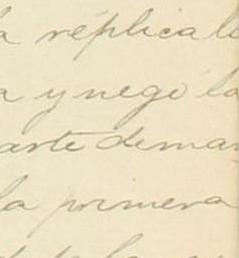 la réplica lo
a y negó la
arte deman
la primera